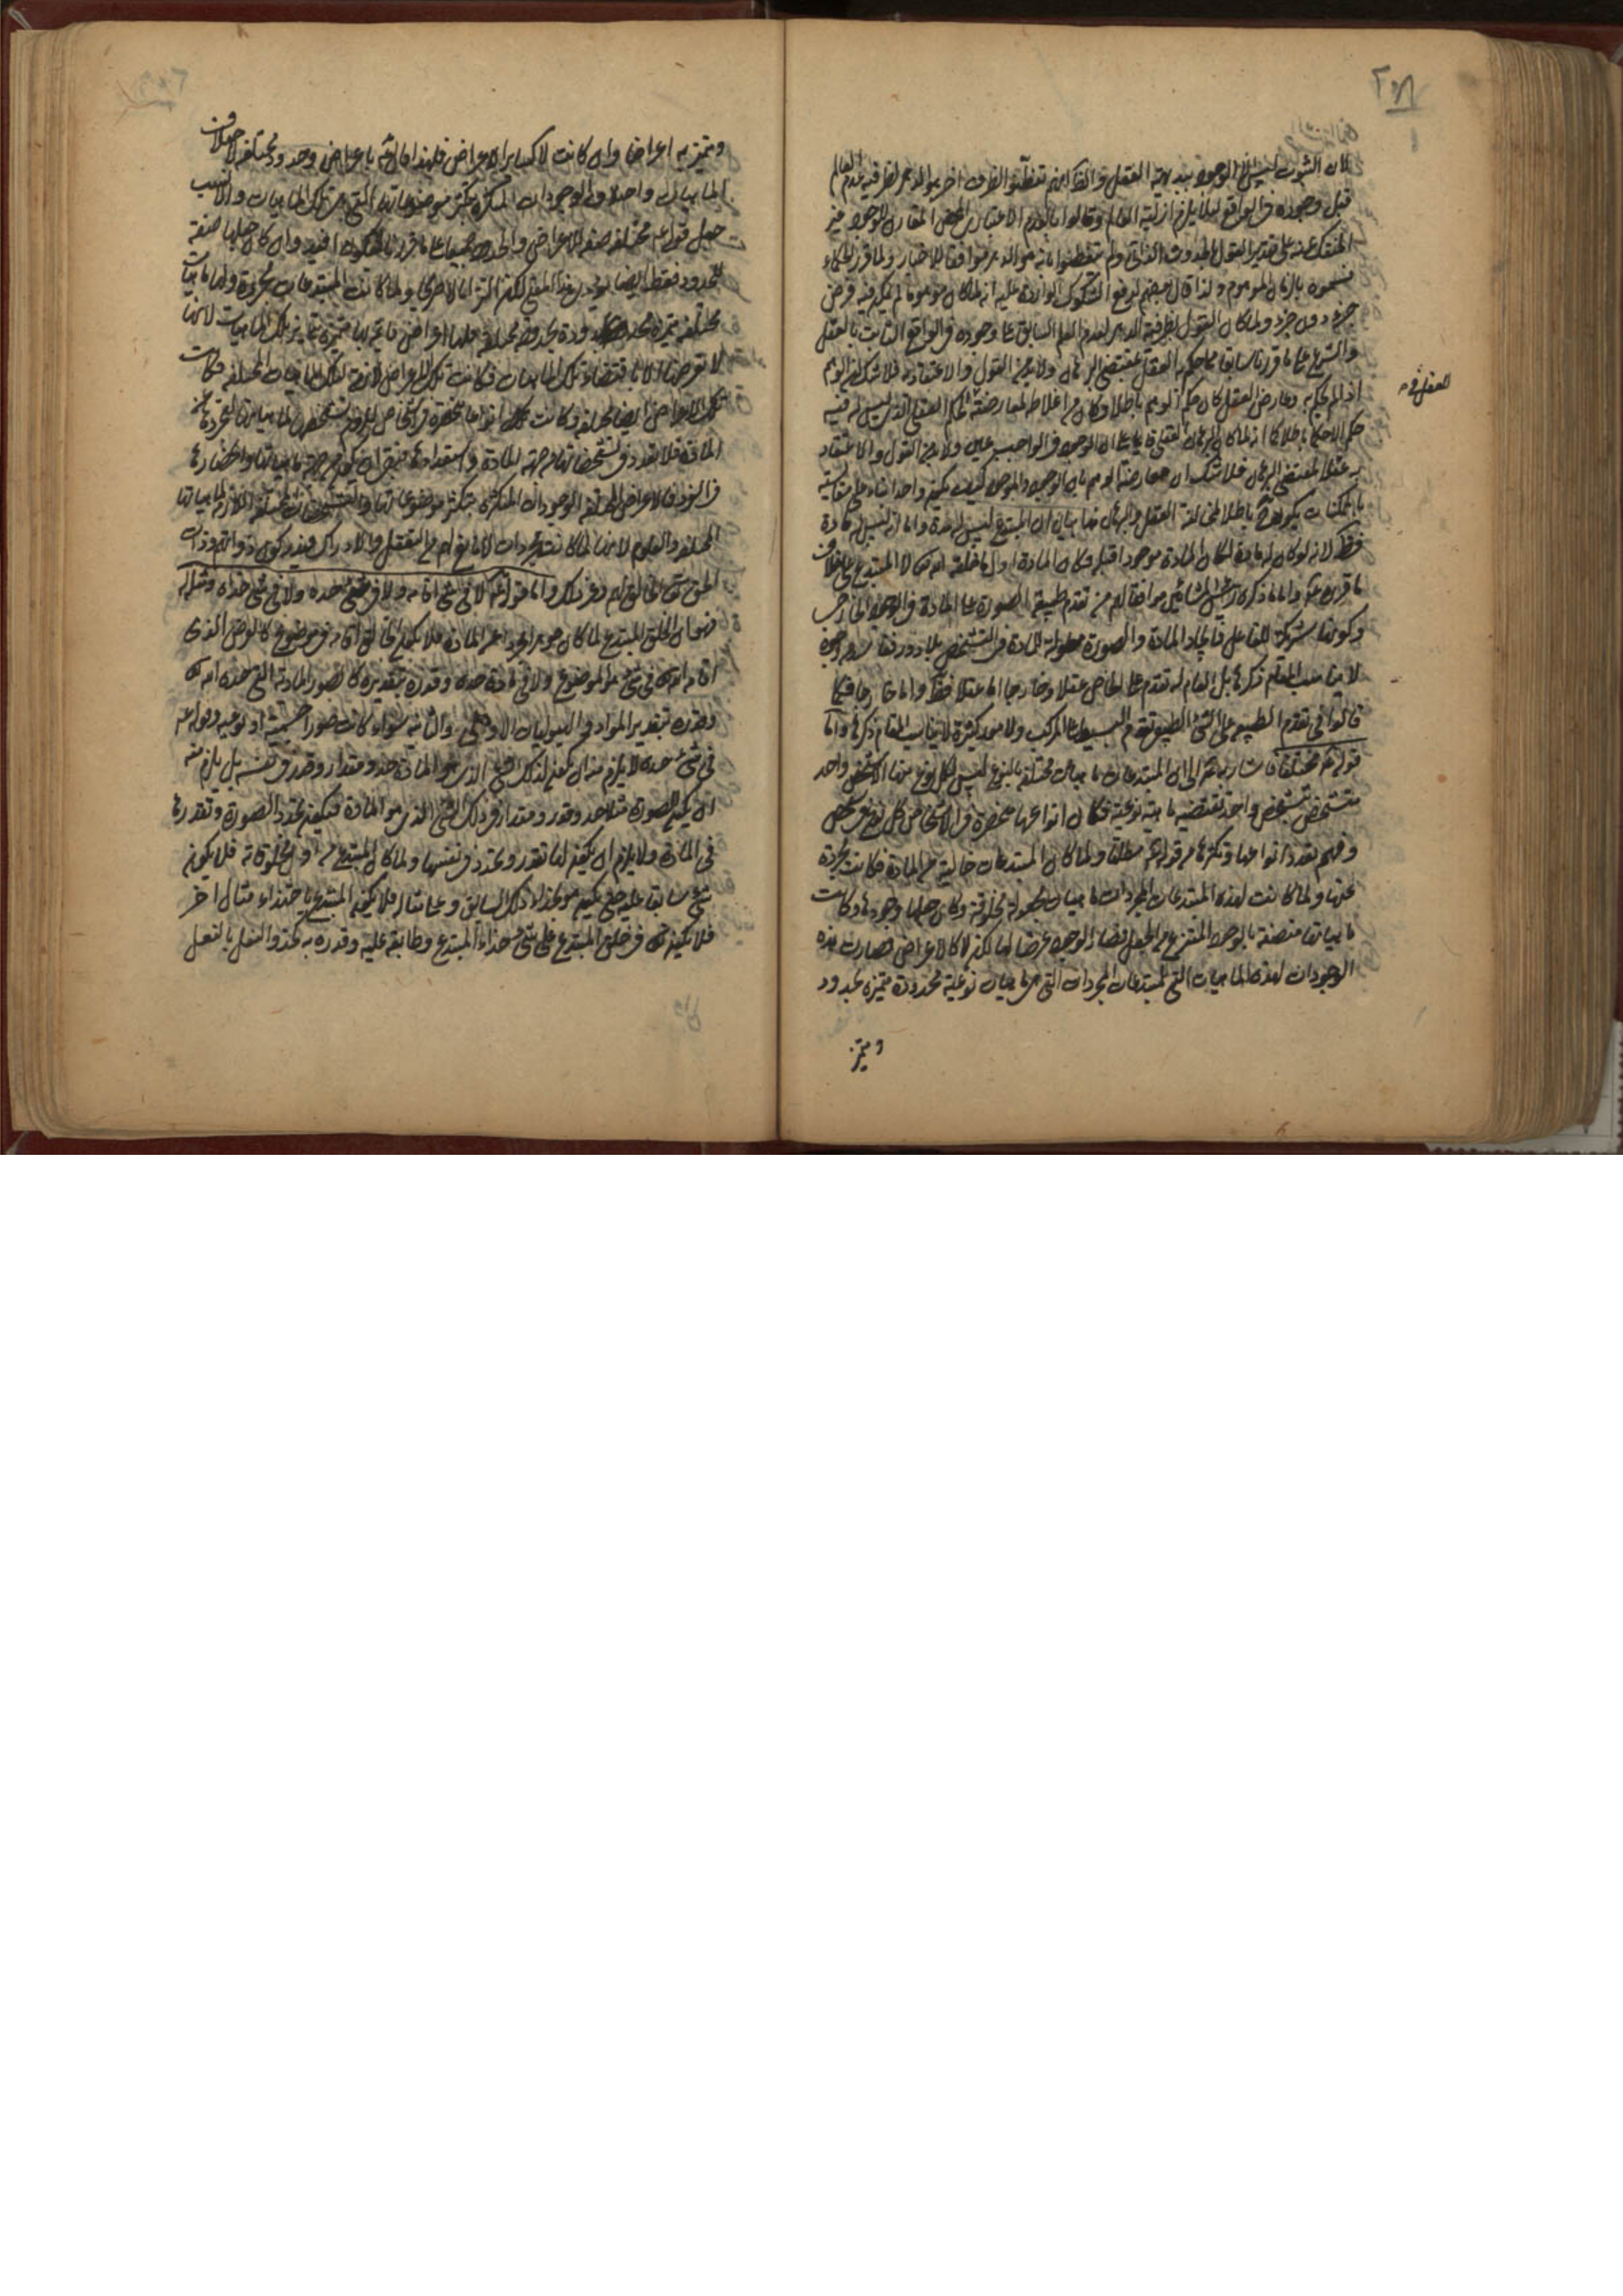 لان الثبوت ليس الا الوجود ببديهة العقل والظ انهم تفطنوا لظرف اخر هو الدهر لظرفية عدم العالم
قبل وجوده في الواقع لئلا يلزم ازلية العالم وقالوا بالعدم الاعتباري المحض المقارن للوجود غير
المنفك عنه على تقدير القول بالحدوث الذاتي ولم يتفطنوا بانه هو الدهر موافقا للاخبار ولما قرر الحكماء
فسموه بالزمان الموهوم ولذا قال بعضهم لدفع الشكوك الواردة عليه انه لما كان موهوما لم يكن فيه فرض
جزء دون جزء ولما كان القول بظرفية الدهر لعدم العالم السابق على وجوده في الواقع الثابت بالعقل
والشرع على ما قررنا سابقا مما حكم به العقل بمقتضى البرهان ولا يجوز القول والاعتقاد به فلا شك ان الوهم
اذا لم يحكم به وعارض العقل كان حكم الوهم باطلا وكان من اغلاط لمعارضته لحكم العقل الذي ليس له فيه
حكم الاحكام باطلا كما انه لما كان البرهان العقلي قائما على ان الوجود في الواجب عين ولا يجوز القول والاعتقاد
به عقلا لمقتضى البرهان فلا شك ان معارضة الوهم بان الوجود والموجود كيف يكون واحدا بناء على مقايسته
بالممكنات يكون باطلا لمخالفة العقل والبرهان هذا بيان ان المبتدع ليس له مدة واما انه ليس له مادة
فظ لانه لو كان له مادة لكان المادة موجودا قبله فكان المادة اول ما خلقه الله تعالى لا المبتدع على خلاف
ما قررنا واما ما ذكره رئيس المشائين موافقا لهم من تقدم طبيعة الصورة على المادة في الوجود الخارجي
وكونها شريكة للفاعل في ايجاد المادة والصورة معلولة للمادة في التشخص بلا دور فله وجوه
لا يناسب المقام ذكرها بل العام له تقدم على الخاص عقلا وخارجا اما عقلا فظ واما خارجا فكما
قالوا في تقدم الطبيعي على الشئ الطبيعي تقدم البسيط على المركب ولا مور كثيرة لا يناسب المقام ذكرها واما
قوله ثم مختلفات اشارة الى ان المبتدعات ماهيات مختلفة بالنوع ليس لكل نوع منها الا شخص واحد
متشخص بتشخص واحد تقتضيه ماهية نوعية فكان انواعها منحصرة في الاشخاص كل نوع في شخص
وفهم تعدد انواعها وتكثرها من قوله ثم مطلقا ولما كان المبتدعات خالية عن المادة فكانت مجردة
عنها ولما كانت لهذه المبتدعات المجردات ماهيات مجعولة مخلوقة وكان جعلها وجودها وكانت
ماهياتها متصفة بالوجود المنتزع من الجعل فصار الوجود عرضا لها لكن لا كالاعراض فصارت هذه
الوجودات لهذه الماهيات التي للمبتدعات المجردات التي هي ماهيات نوعية محدودة متميزة بحدود
ويتميز
العقل في
وتتميز به اعراضا وان كانت لا كساير الاعراض فلهذا قال ثم باعراض وحدود مختلفة لاختلاف
الماهيات واختلاف الوجودات المتكثرة بتكثر موضوعاتها التي هي تلك الماهيات والانسب
جعل قوله مختلفة صفة للاعراض والحدود جميعا على ما قررنا ليكون افيد وان كان جعلها صفة
للحدود فقط ايضا يؤدي هذا المعنى لكن التزاما لا صريحا ولما كانت المبتدعات مجردة ولها ماهيات
مختلفة متميزة محدودة بحدود مختلفة ولها اعراض قائمة بها متميزة بتمايز تلك الماهيات لانها
لا تعرضها الا باقتضاء تلك الماهيات فكانت تلك الاعراض لازمة لتلك الماهيات المختلفة فكانت
تلك الاعراض ايضا مختلفة وكانت تلك انواعا منحصرة في اشخاص للزوم تشخصها لماهياتها لتجردها عن
المادة فلا تعدد في تشخصاتها من جهة المادة واستعدادها فيبقى ان يكون من جهة ماهياتها وانحصارها
في الفرد فالاعراض المختلفة الوجودات المتكثرة بتكثر موضوعاتها والتشخصات المختلفة اللازمة لماهياتها
المختلفة والعلوم لانها لما كانت مجردات لا مانع لهم عن التعقل والادراك فيدركون ذواتهم وذات
الحق تعالى الخالق لهم وغير ذلك واما قوله ثم لا في شئ اقامه ولا في شئ حده ولا في شئ حذاه ومثله له
فهو ان الخلق المبتدع لما كان جوهرا مجردا عن المادة فلا يكون الخالق اقامه في موضوع كالعرض الذي
اقامه الله في شئ هو الموضوع ولا في مادة حده وقدره بتقديره كالصور المادية التي حده الله تعالى
وقدره بتقدير المواد في الهيوليات الاولى والثانية سواء كانت صورا جسمية او نوعية وقوله ثم
في شئ حده لا يلزم منه ان يكون لذلك الشئ الذي هو المادة حد ومقدار وقدر في نفسه بل يلزم منه
ان يكون للصورة مثلا حد وقدر ومقدار في ذلك الشئ الذي هو المادة فيكون تحدد الصورة وتقدرها
في المادة ولا يلزم ان يكون لها تقدر وتحدد في نفسها ولما كان المبتدع هو اول مخلوقاته فلا يكون
شئ سابقا عليه حتى يكون هو بحذاء ذلك السابق وعلى مثاله فلا يكون المبتدع باحتذاء مثال اخر
فلا يكون تعالى قد خلق المبتدع على شئ حذاء المبتدع وطابقه عليه وقدره به كحذو النعل بالنعل